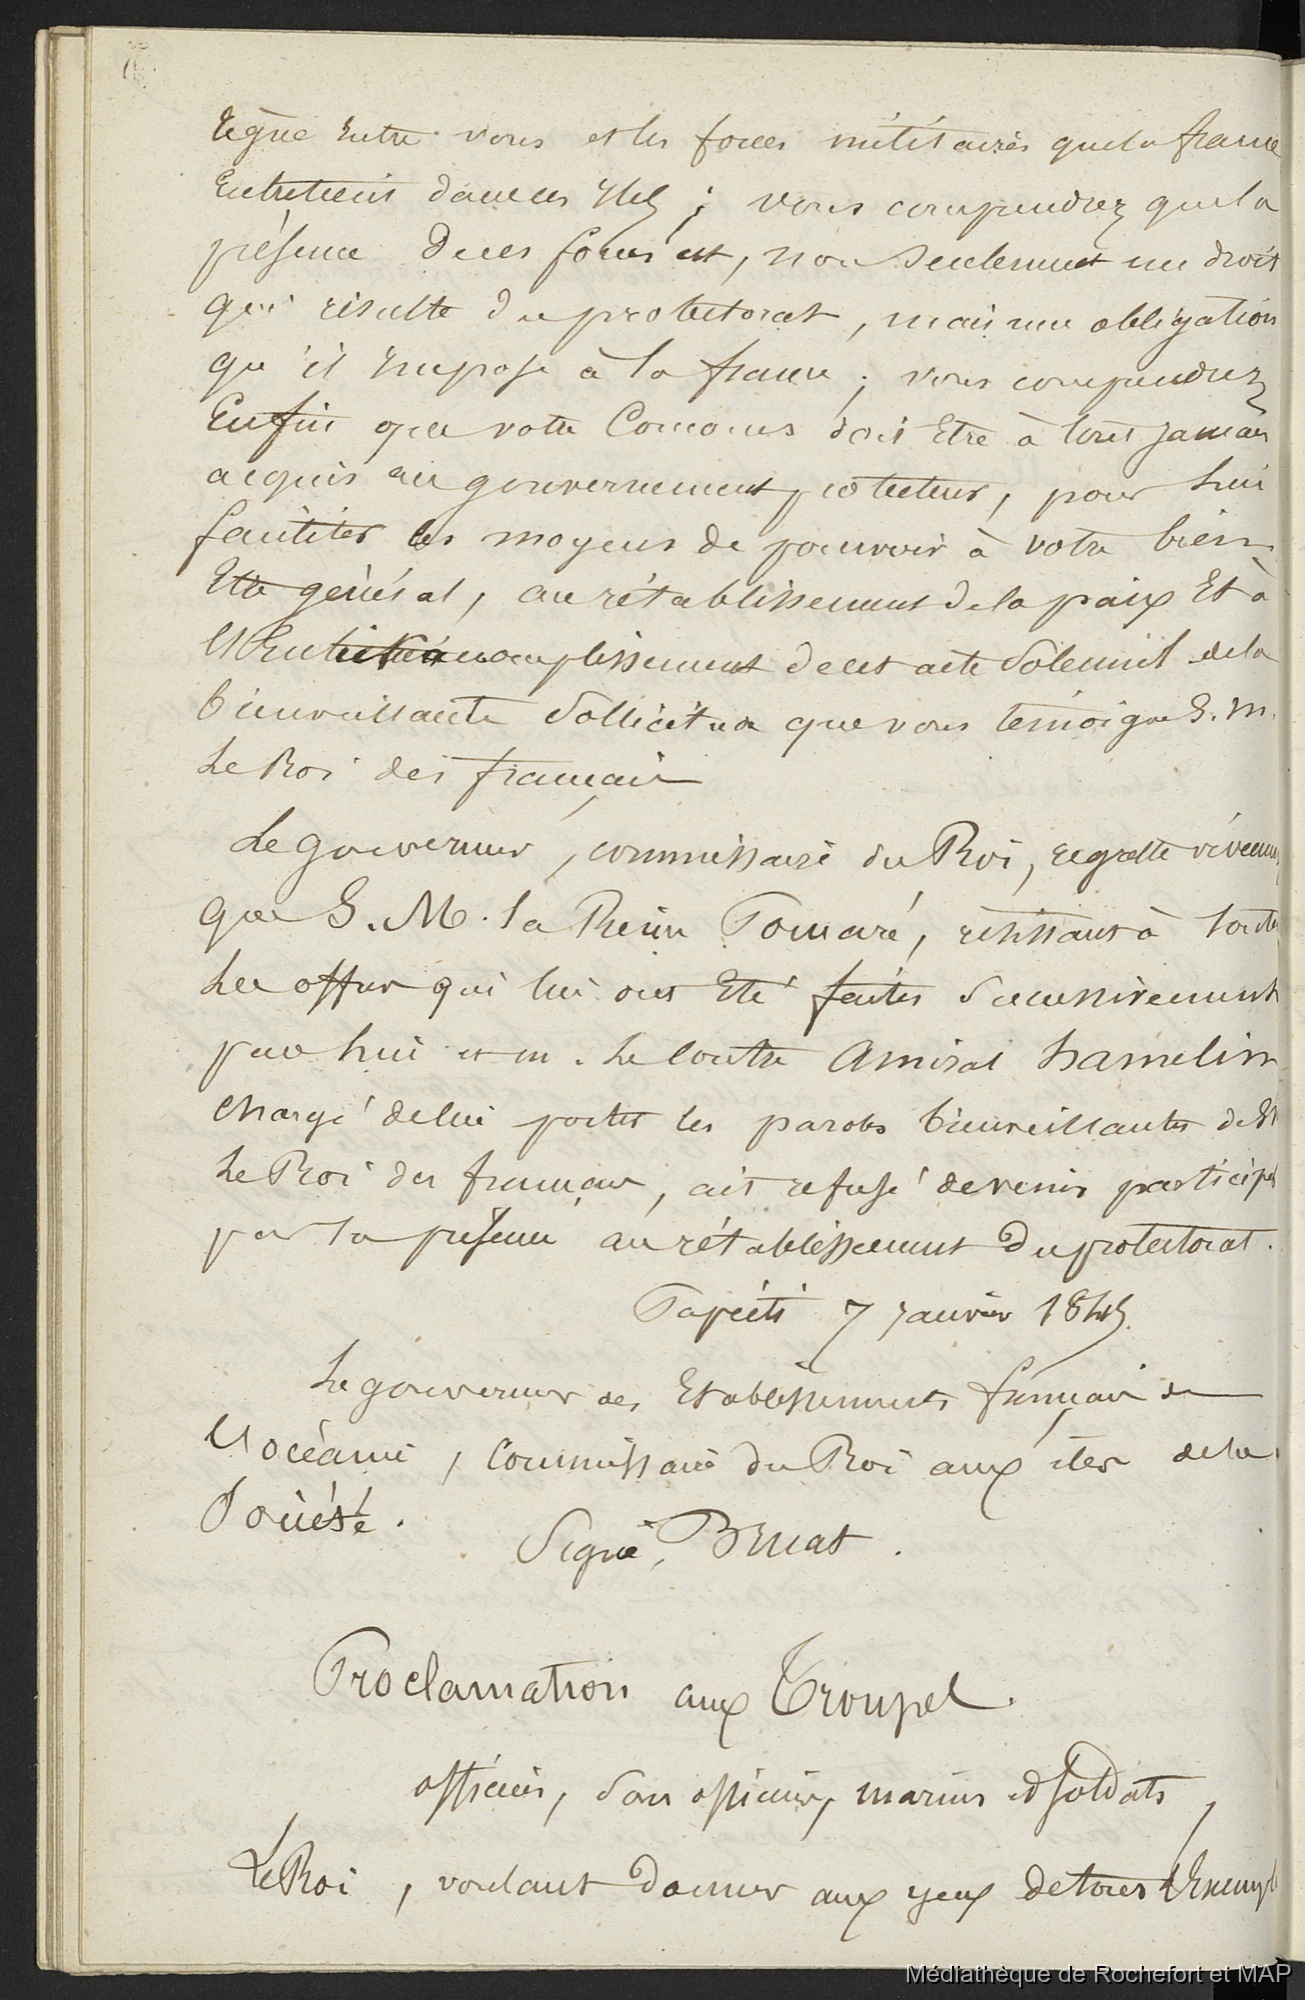 règne entre vous et les forces militaires que la france
Entretient dans ces Iles ; vous comprendrez que la
présence de ces forces est, non seulement un droit
qui résulte du protectorat, mais une obligation
qu'il impose à la france ; vous comprendrez
Enfin que votre Concours doit Etre à tout jamais
acquis au gouvernement protecteur, pour lui
faciliter les moyens de pourvoir à votre bien-
Etre général, au rétablissement de la paix Et à
l'Entier accomplissement de cet acte Solennel de la
bienveillante Sollicitude que vous témoigne S. M.
Le Roi des français
Le gouverneur, commissaire du Roi, regrette vivement
que S. M. la Reine Pomaré, résistant à toutes
Les offres qui lui ont Eté faites successivement
par lui et m. Le Contre Amiral hamelin
chargé de lui porter les paroles bienveillantes de
Le Roi des français, ait refusé de venir participer
par sa présence au rétablissement du protectorat.
Papéiti 7 janvier 1845.
Le gouverneur des Etablissements français de
l'océanie, Commissaire du Roi aux iles de la
Société.
Signé, Bruat.
Proclamation aux Troupes.
officiers, Sous officiers, marins et soldats,
Le Roi, voulant donner aux yeux de tous l'Exemple
Médiathèque de Rochefort et MAP